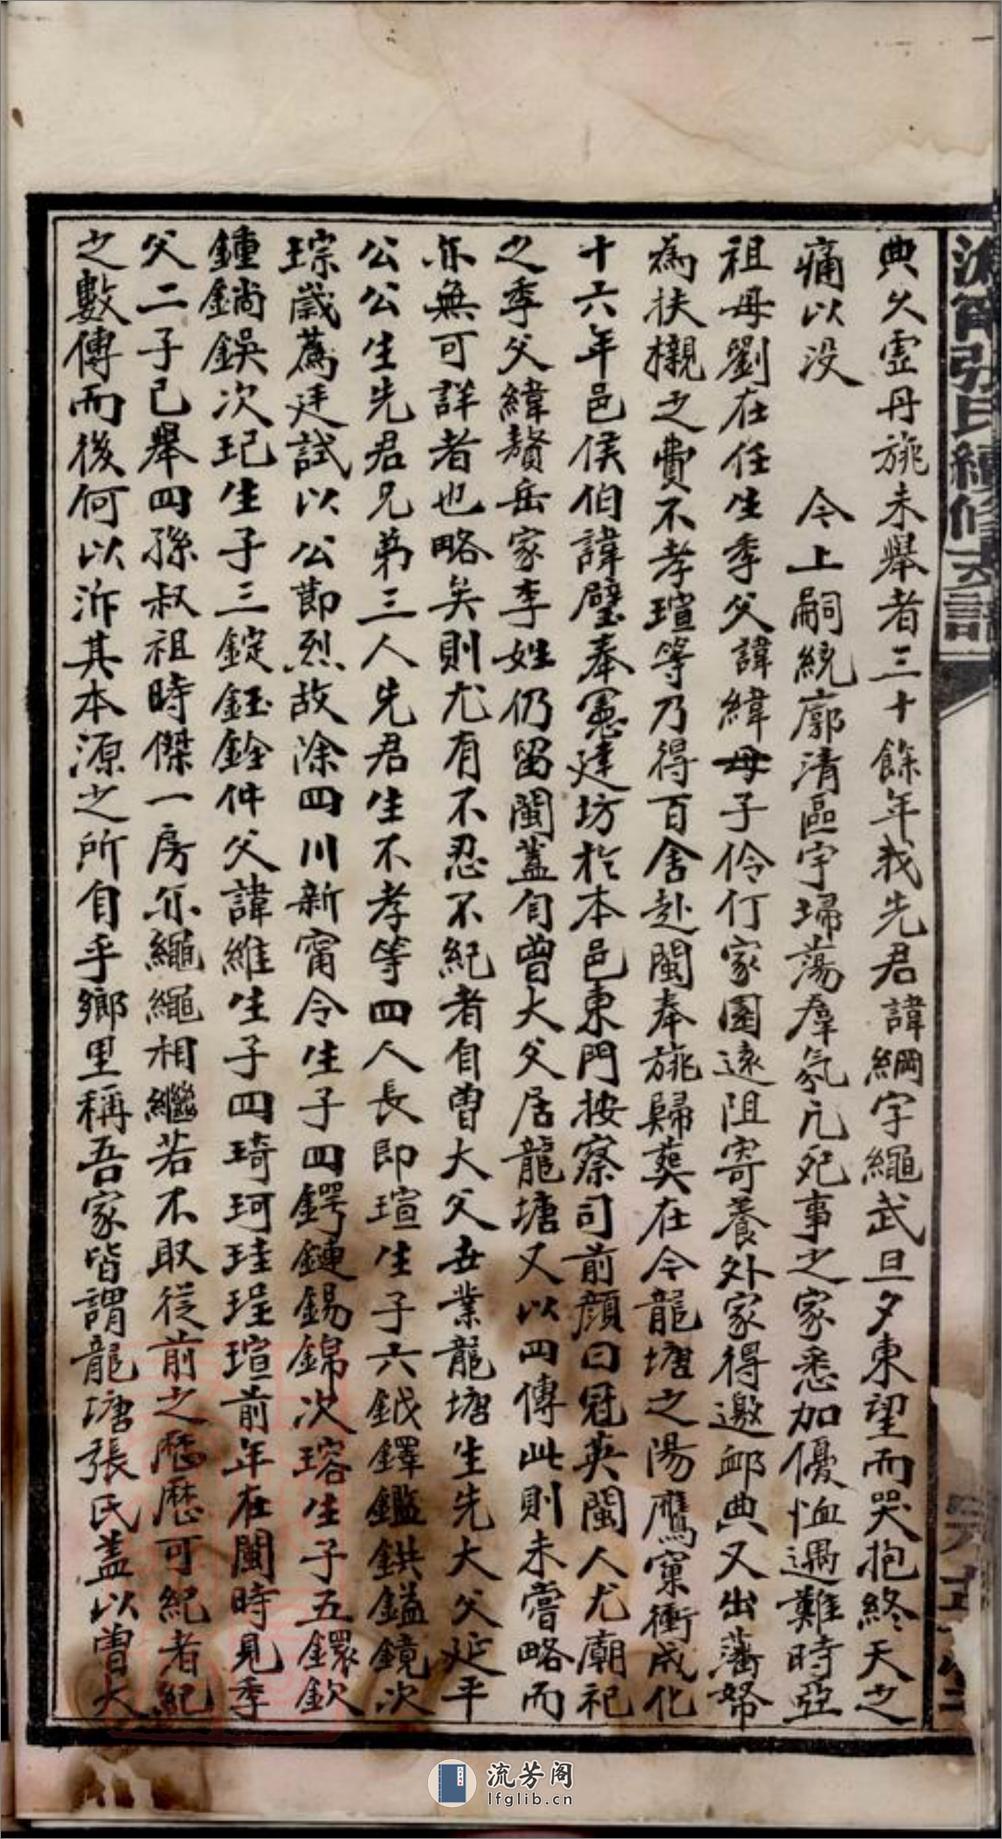 典久虛丹旐未舉者三十餘年我先君諱綱字繩武旦夕東望而哭抱終天之
痛以没　　今上嗣統廓清區宇埽蕩羣氛凡死事之家悉加優恤遇難時亞
祖母劉在任生季父諱緯母子伶仃家園遠阻寄養外家得邀䘏典又出藩帑
為扶櫬之費不孝瑄等乃得百舍赴閩奉旐歸葬在今龍塘之陽鷹窠衝成化
十六年邑侯伯諱璧奉憲建坊於本邑東門按察司前顔曰冠英閩人尤廟祀
之季父緯贅岳家李姓仍留閩蓋自曾大父居龍塘又以四傳此則未嘗略而
亦無可詳者也略矣則尤有不忍不紀者自曾大父世業龍塘生先大父延平
公公生先君兄弟三人先君生不孝等四人長即瑄生子六鉞鐸鑑鉷鎰鏡次
琮歲薦廷試以公節烈故除四川新甯令生子四鍔鏈錫錦次瑢生子五鐶欽
鍾鏑鋘次玘生子三錠鈺銓仲父諱維生子四琦珂珪珵瑄前年在閩時見季
父二子已舉四孫叔祖時傑一房亦繩繩相繼若不取從前之歷歷可紀者紀
之數傳而後何以泝其本源之所自乎鄉里稱吾家皆謂龍塘張氏蓋以曾大
張氏續修六譜
流芳阁
lfglib.cn